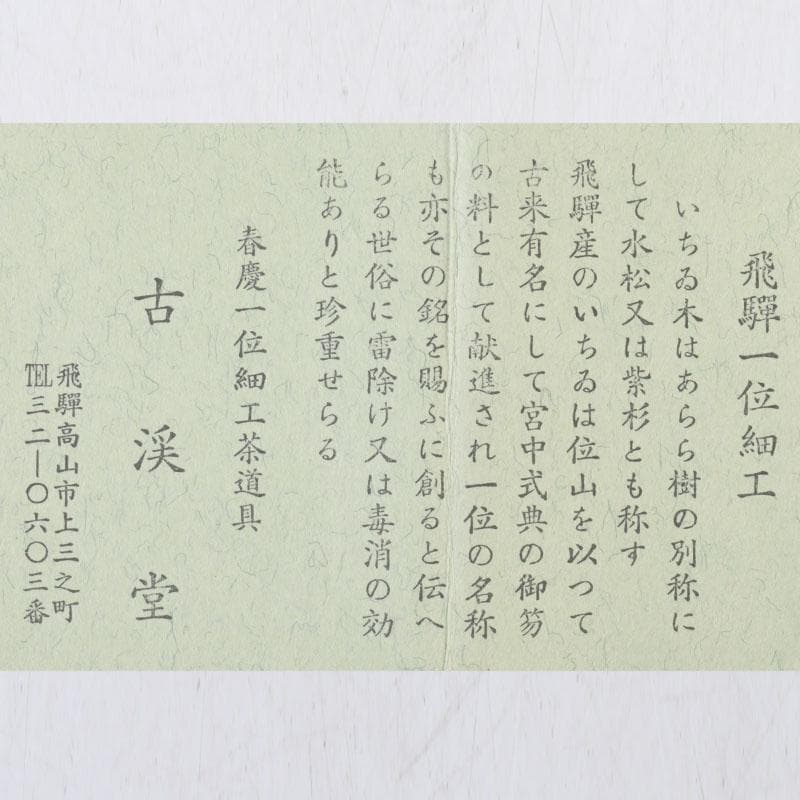 飛驒一位細工
いちゐ木はあらら樹の別称に
して水松又は紫杉とも称す
飛驒産のいちゐは位山を以つて
古来有名にして宮中式典の御笏
の料として献進され一位の名称
も亦その銘を賜ふに創ると伝へ
らる世俗に雷除け又は毒消の効
能ありと珍重せらる
春慶一位細工茶道具
古渓堂
飛驒高山市上三之町
TEL三二―〇六〇三番